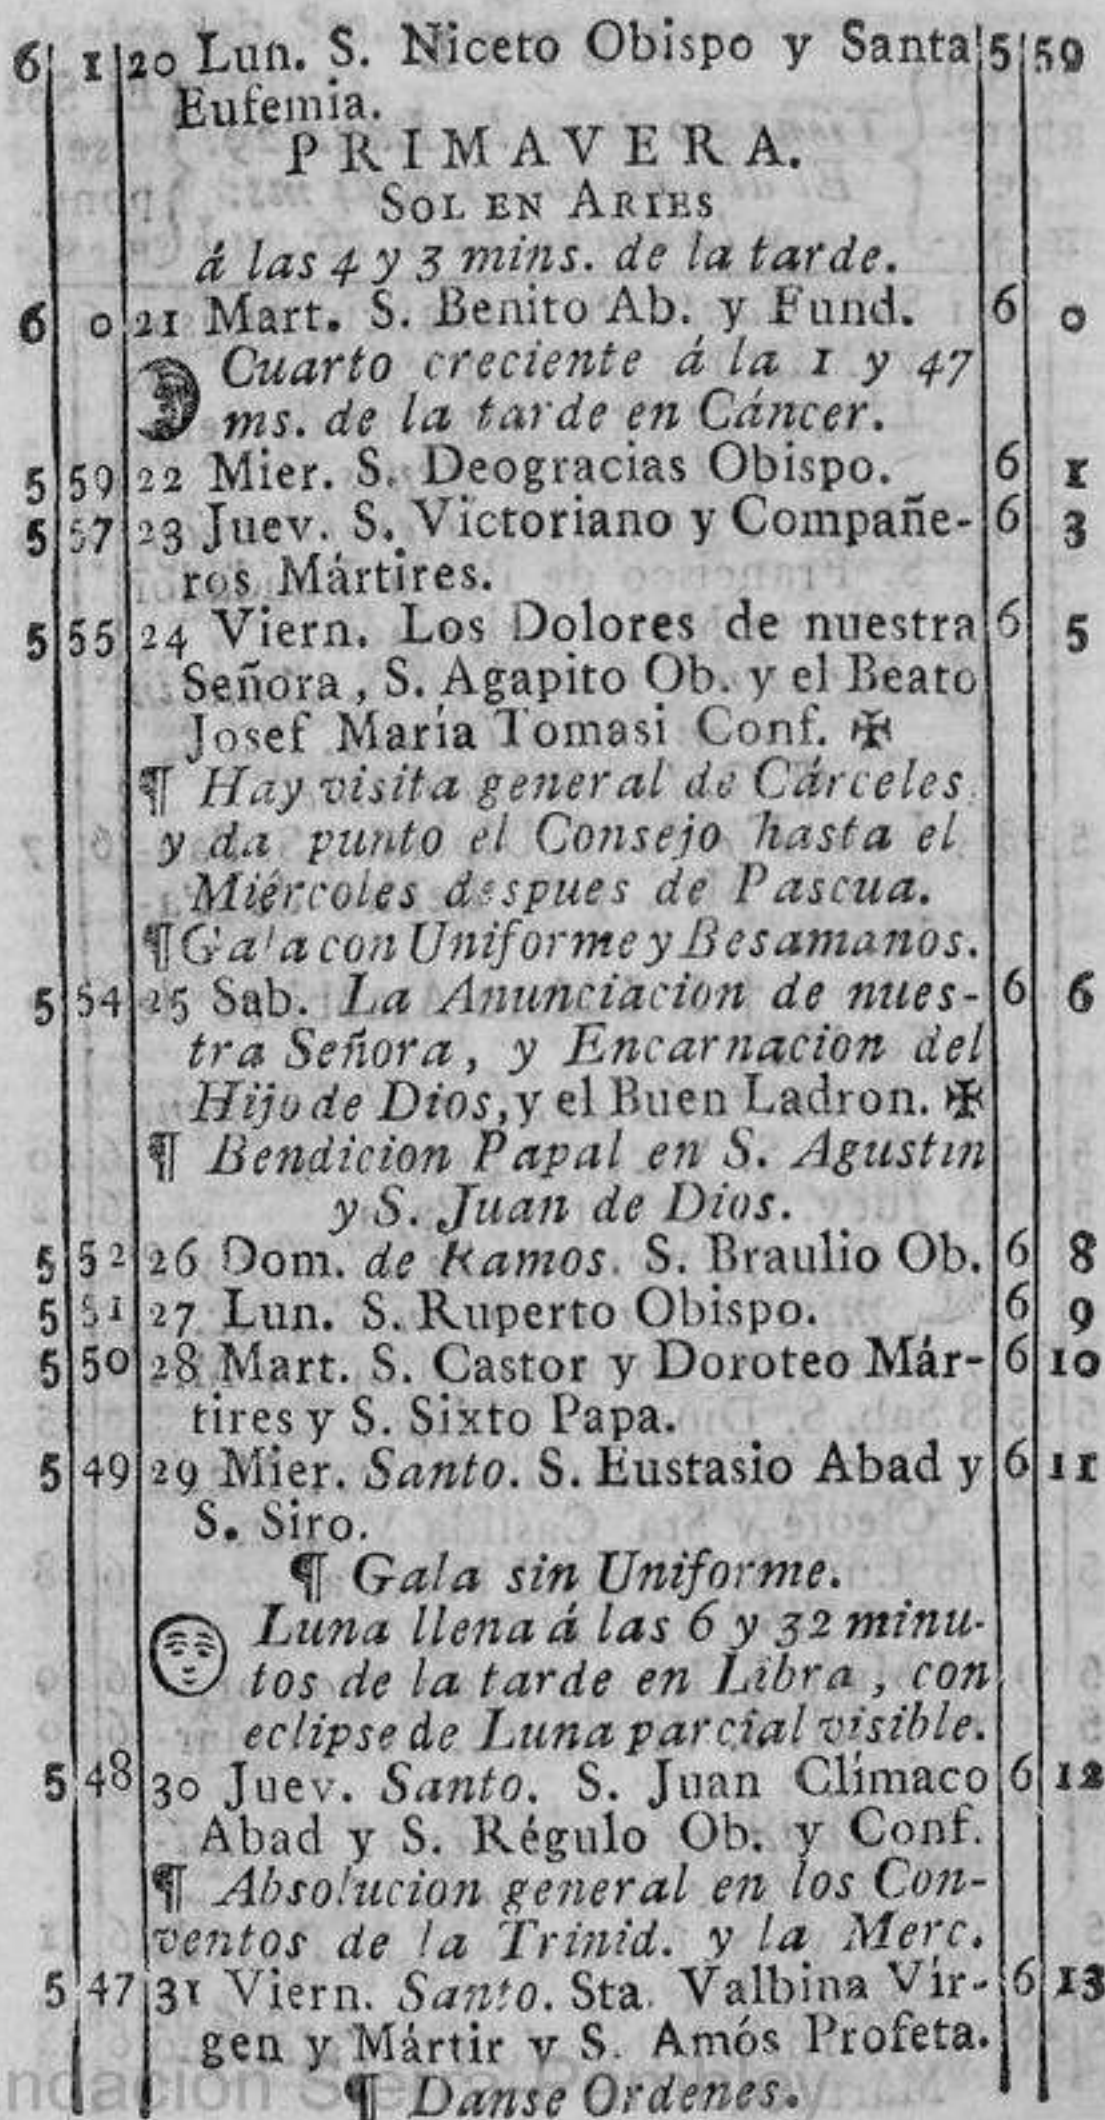 6 1 20 Lun. S. Niceto Obispo y Santa 5 59
Eufemia.
PRIMAVERA.
SOL EN ARIES
á las 4 y 3 mins. de la tarde.
6 0 21 Mart. S. Benito Ab. y Fund. 6 0
Cuarto creciente á la 1 y 47
ms. de la tarde en Cáncer.
5 59 22 Mier. S. Deogracias Obispo. 6 1
5 57 23 Juev. S. Victoriano y Compañe- 6 3
ros Mártires.
5 55 24 Viern. Los Dolores de nuestra 6 5
Señora, S. Agapito Ob. y el Beato
Josef María Tomasi Conf. ✠
¶ Hay visita general de Cárceles
y da punto el Consejo hasta el
Miércoles despues de Pascua.
¶ Gala con Uniforme y Besamanos.
5 54 25 Sab. La Anunciacion de nues- 6 6
tra Señora, y Encarnacion del
Hijo de Dios, y el Buen Ladron. ✠
¶ Bendicion Papal en S. Agustin
y S. Juan de Dios.
5 52 26 Dom. de Ramos. S. Braulio Ob. 6 8
5 51 27 Lun. S. Ruperto Obispo. 6 9
5 50 28 Mart. S. Castor y Doroteo Már- 6 10
tires y S. Sixto Papa.
5 49 29 Mier. Santo. S. Eustasio Abad y 6 11
S. Siro.
¶ Gala sin Uniforme.
Luna llena á las 6 y 32 minu-
tos de la tarde en Libra, con
eclipse de Luna parcial visible.
5 48 30 Juev. Santo. S. Juan Clímaco 6 12
Abad y S. Régulo Ob. y Conf.
¶ Absolucion general en los Con-
ventos de la Trinid. y la Merc.
5 47 31 Viern. Santo. Sta. Valbina Vír- 6 13
gen y Mártir y S. Amós Profeta.
¶ Danse Ordenes.